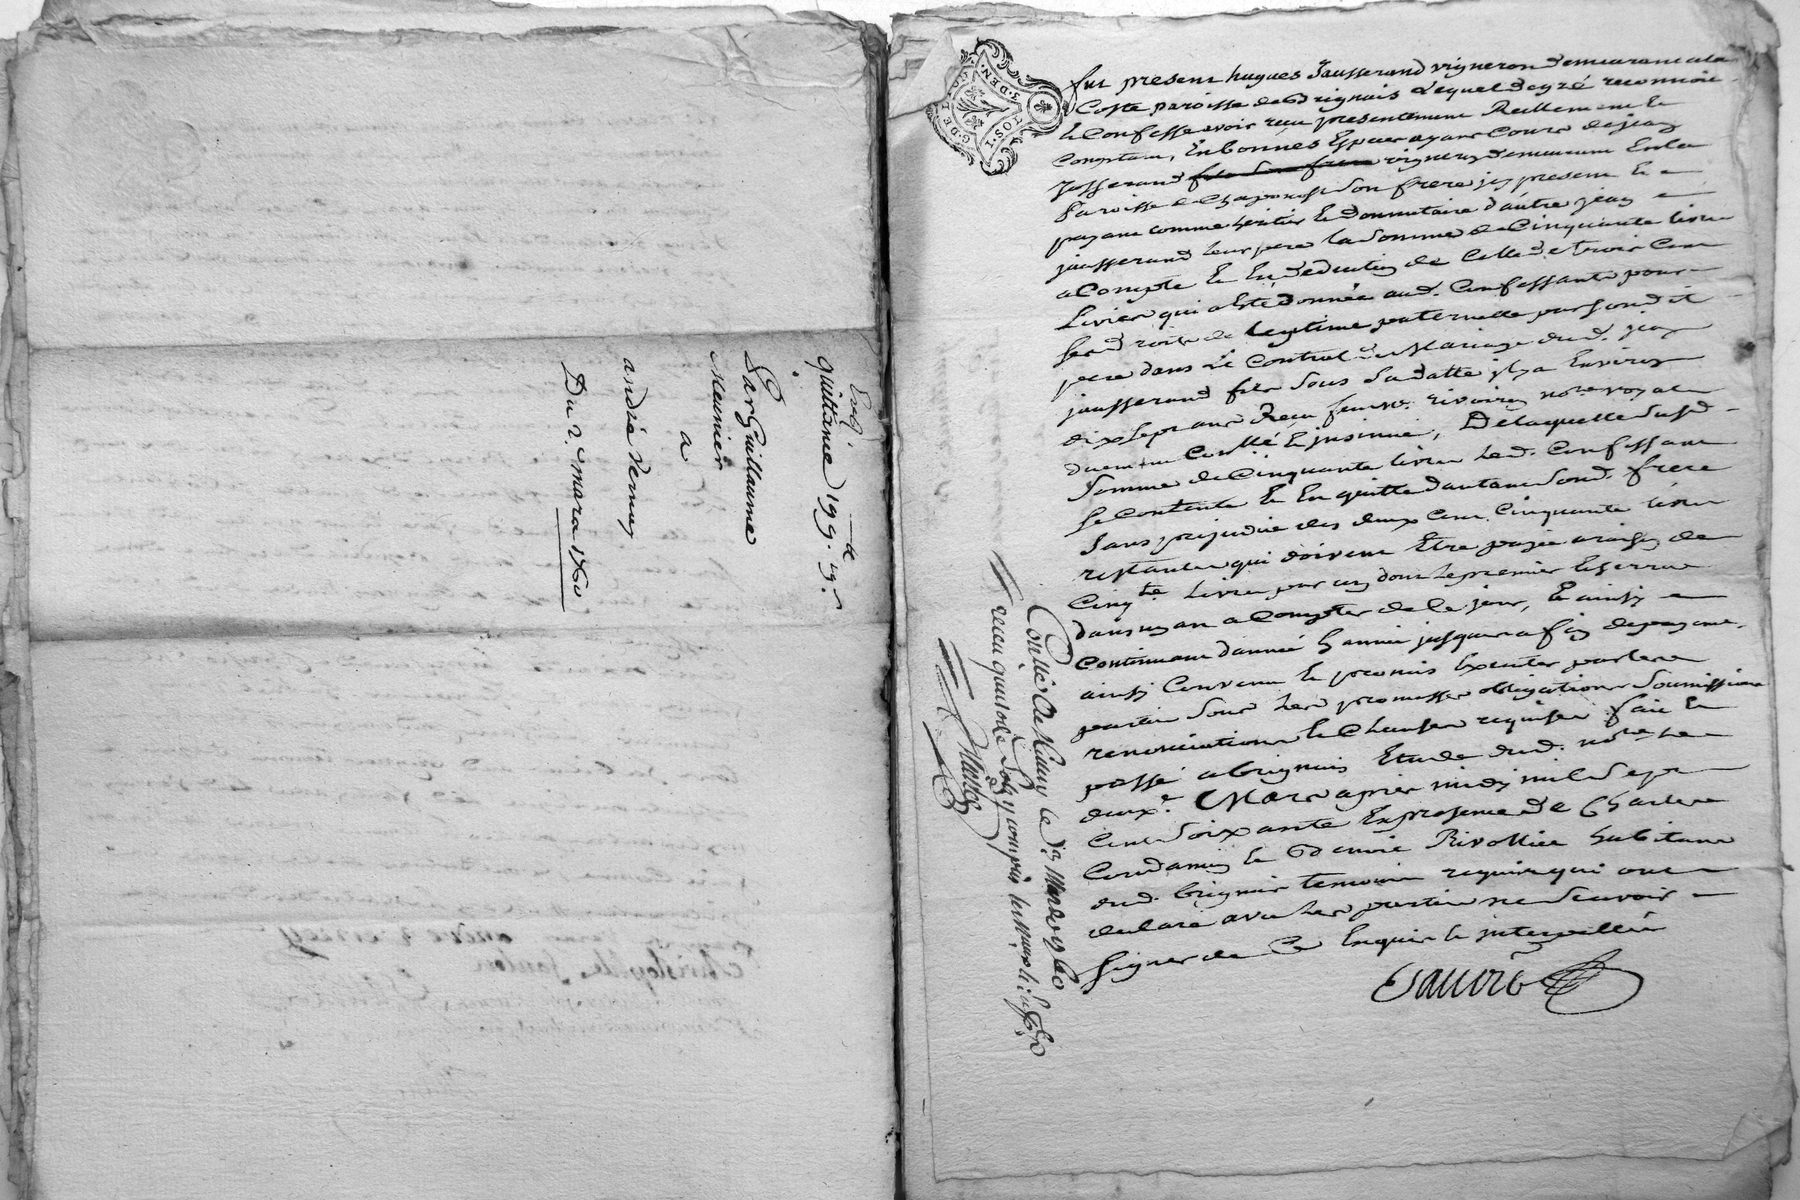 Exp.
quittance 199.lt 19.s
Par Guillaume
Meunier
a
andré Verney
Du 2. mars 1760
G. DE LYON
1. SOL
3. DEN.
fut present hugues Jausserand vigneron demeurant a la
Coste paroisse de Brignais Lequel de gré reconnoit
et Confesse avoir reçu presentement Reellement et
Comptant, En bonnes Especes ayant Cours de jean
Jasserand fils son frere vigneron demeurant En la
Paroisse de Chaponost son frere icy present et
payant comme heritier et donnataire d'autre jean
jausserand leur pere la Somme de Cinquante livres
a Compte et En deduction de Celle de trois Cent
Livres qui a Esté donnée aud. Confessant pour
ses droits de legitime paternelle par sondit
pere dans le Contrat de Mariage dud. jean
jausserand fils sous sa datte il y a Environ
dix sept ans Reçu feu me. rivoire nore royal
duement Conllé et jnsinué, De laquelle susd.
Somme de Cinquante livres led. Confessant
se Contente et En quitte d'autant sond. frere
Sans prejudice des deux Cent Cinquante livres
restantes qui doivent Etre payés a raison de
Cinqte. Livres par an dont le premier terme
dans un an a Compter de ce jour, et ainsi
Continuant d'année En année jusques a fin de payement
ainsi Convenu et promis Executer par les
parties Sous les promesses obligations Soumissions
renonciations et Clauses requises fait et
passé a brignais Etude dud. nore le
deuxe. Mars apres midy mil Sept
Cent Soixante En presence de Charles
Condamin et Benoit Rivollier habitants
dud. brignais temoins requis qui ont
declaré avec les parties ne Scavoir
Signer de Ce Enquis et jnterpellés
Conllé a St Genis le d. 3 Mars 1760
recu quatorze Sols y compris les